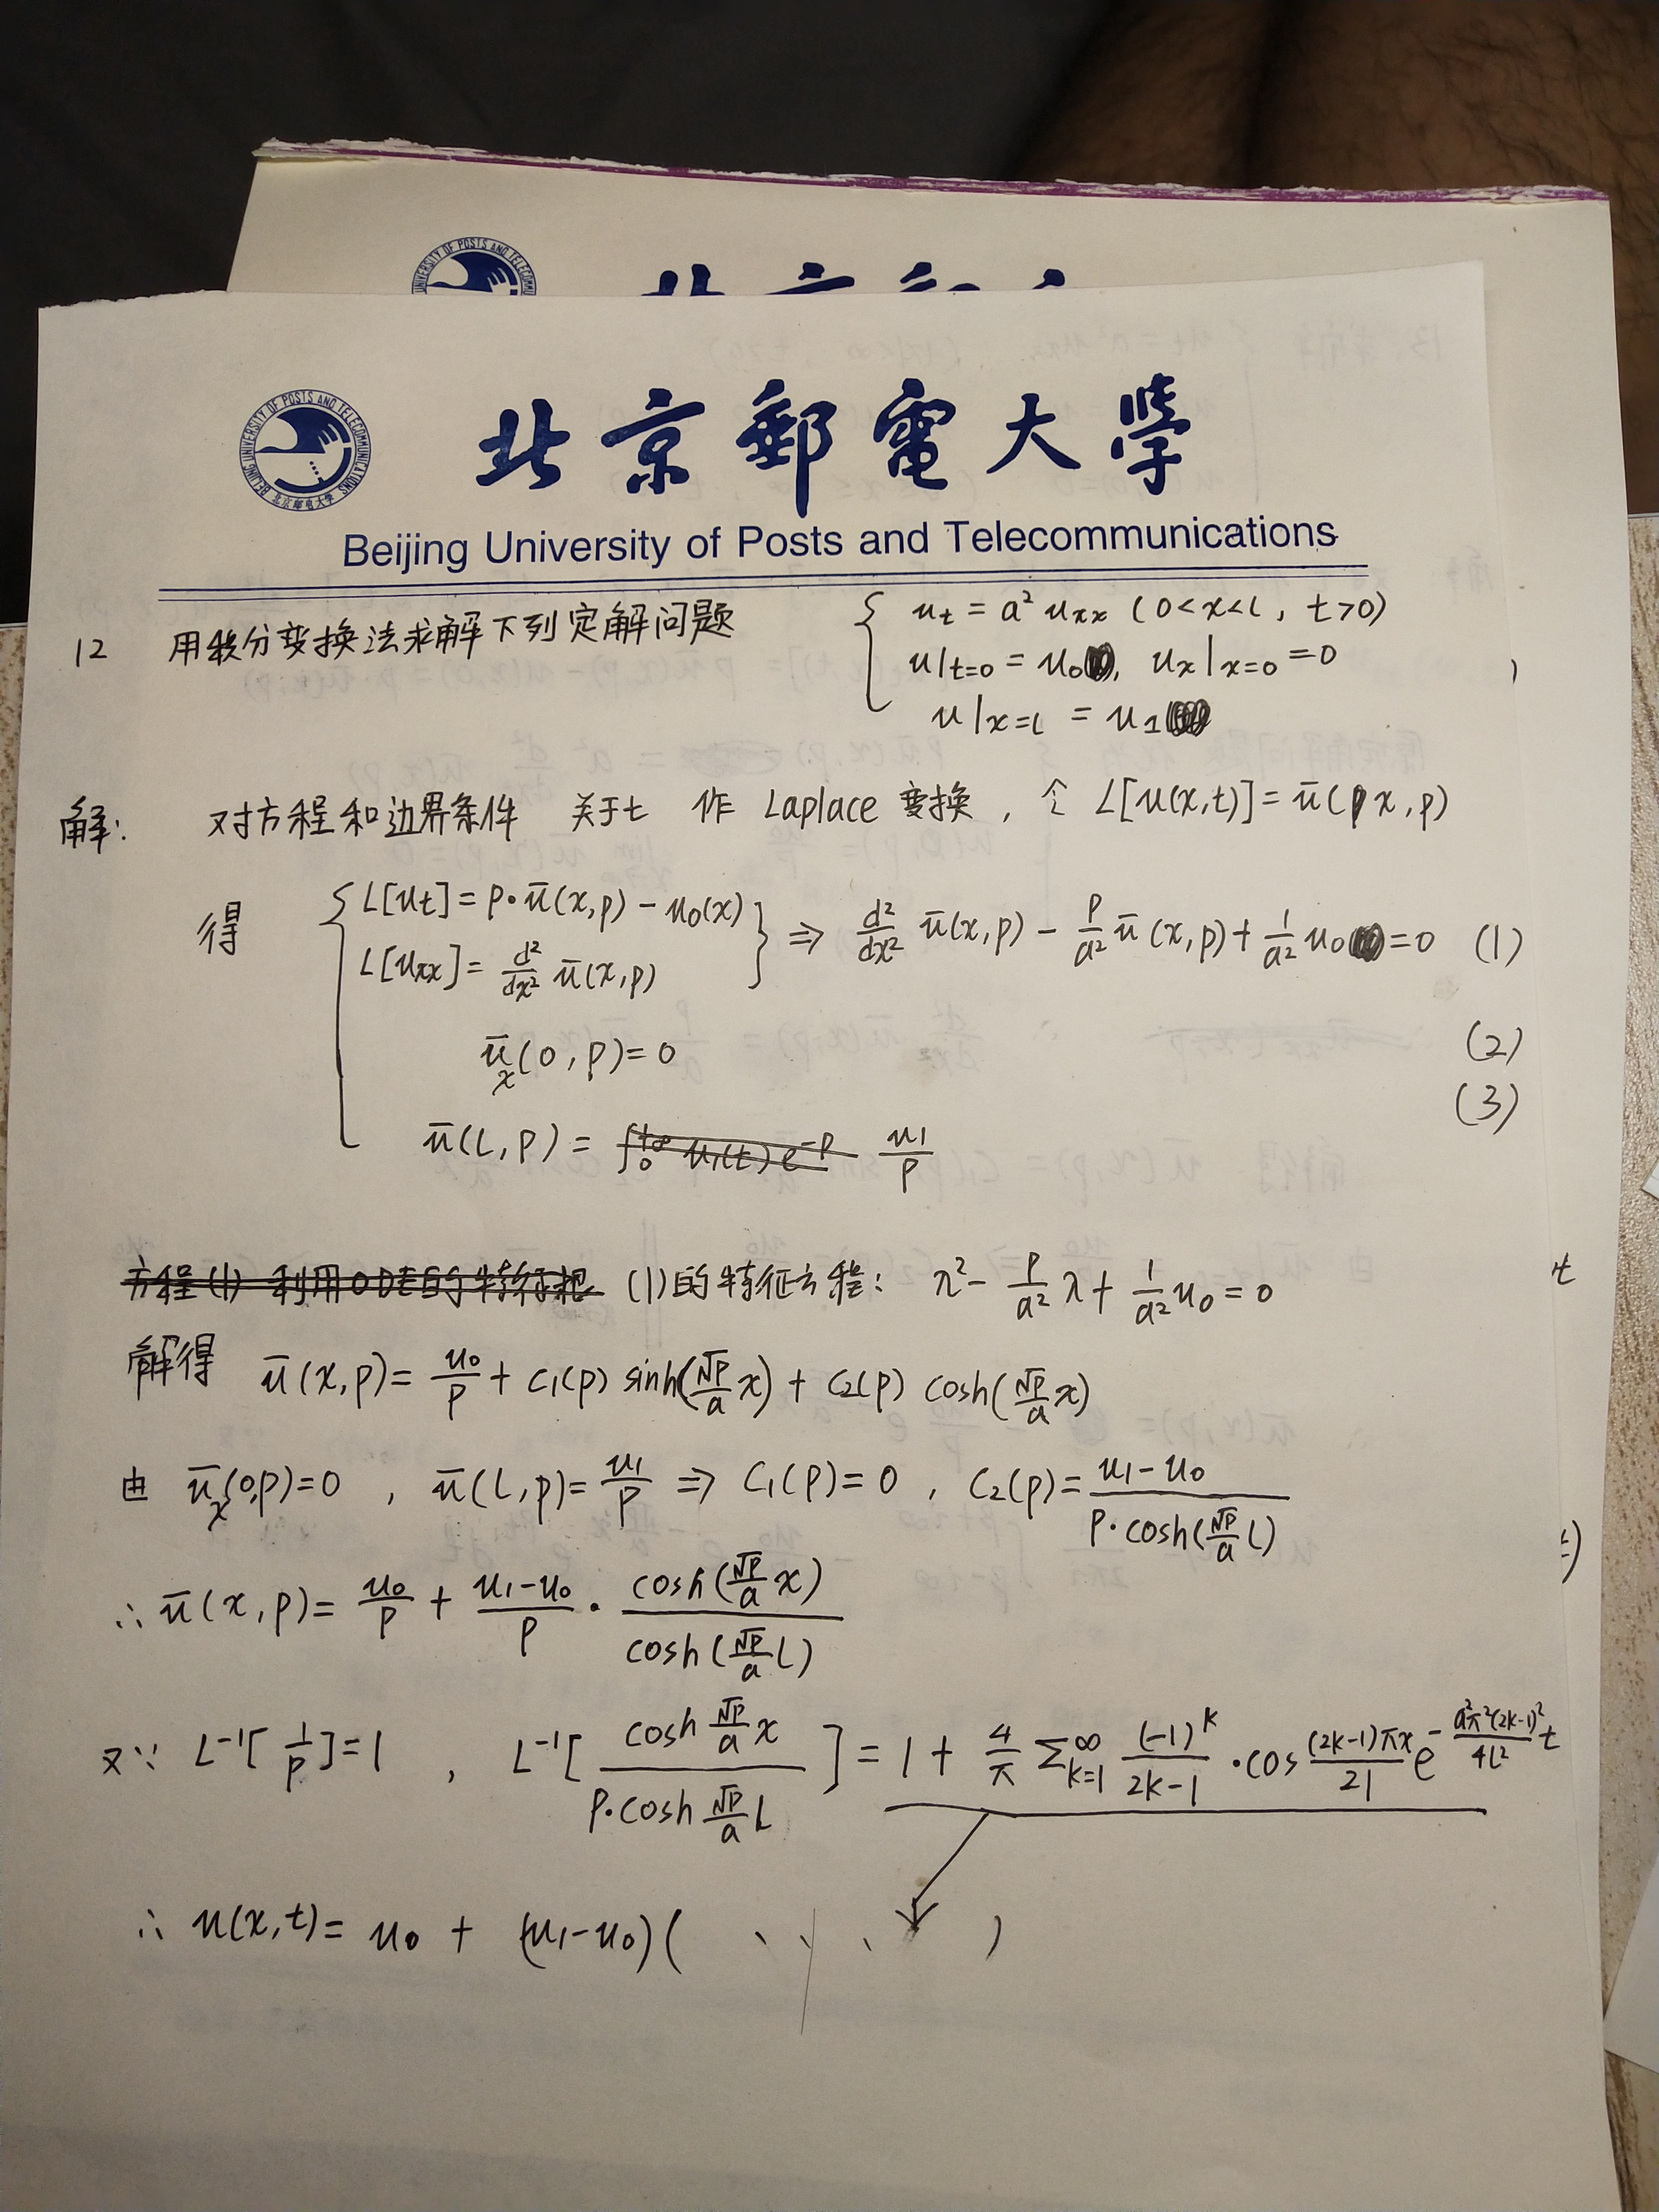 北京郵電大學
Beijing University of Posts and Telecommunications
BEIJING UNIVERSITY OF POSTS AND TELECOMMUNICATIONS 北京邮电大学
12 用积分变换法求解下列定解问题 { u_t = a² u_xx (0<x<l, t>0)
u|t=0 = u₀, u_x|x=0 = 0
u|x=l = u₁
解: 对方程和边界条件 关于t 作 Laplace 变换, 令 L[u(x,t)] = ū(x,p)
得 { L[u_t] = p·ū(x,p) - u₀(x)
L[u_xx] = d²/dx² ū(x,p) } ⇒ d²/dx² ū(x,p) - p/a² ū(x,p) + 1/a² u₀ = 0 (1)
ū_x(0,p) = 0 (2)
ū(l,p) = u₁/p (3)
方程(1) 利用ODE的特征根 (1)的特征方程: λ² - p/a² λ + 1/a² u₀ = 0
解得 ū(x,p) = u₀/p + c₁(p) sinh(√p/a x) + c₂(p) cosh(√p/a x)
由 ū_x(0,p)=0, ū(l,p) = u₁/p ⇒ c₁(p)=0, c₂(p) = (u₁-u₀)/(p·cosh(√p/a l))
∴ ū(x,p) = u₀/p + (u₁-u₀)/p · cosh(√p/a x)/cosh(√p/a l)
又∵ L⁻¹[1/p]=1, L⁻¹[cosh √p/a x / (p·cosh √p/a l)] = 1 + 4/π Σ_{k=1}^{∞} (-1)^k/(2k-1) · cos (2k-1)πx/2l e^{-a²π²(2k-1)²/4l² t}
∴ u(x,t) = u₀ + (u₁-u₀)( )